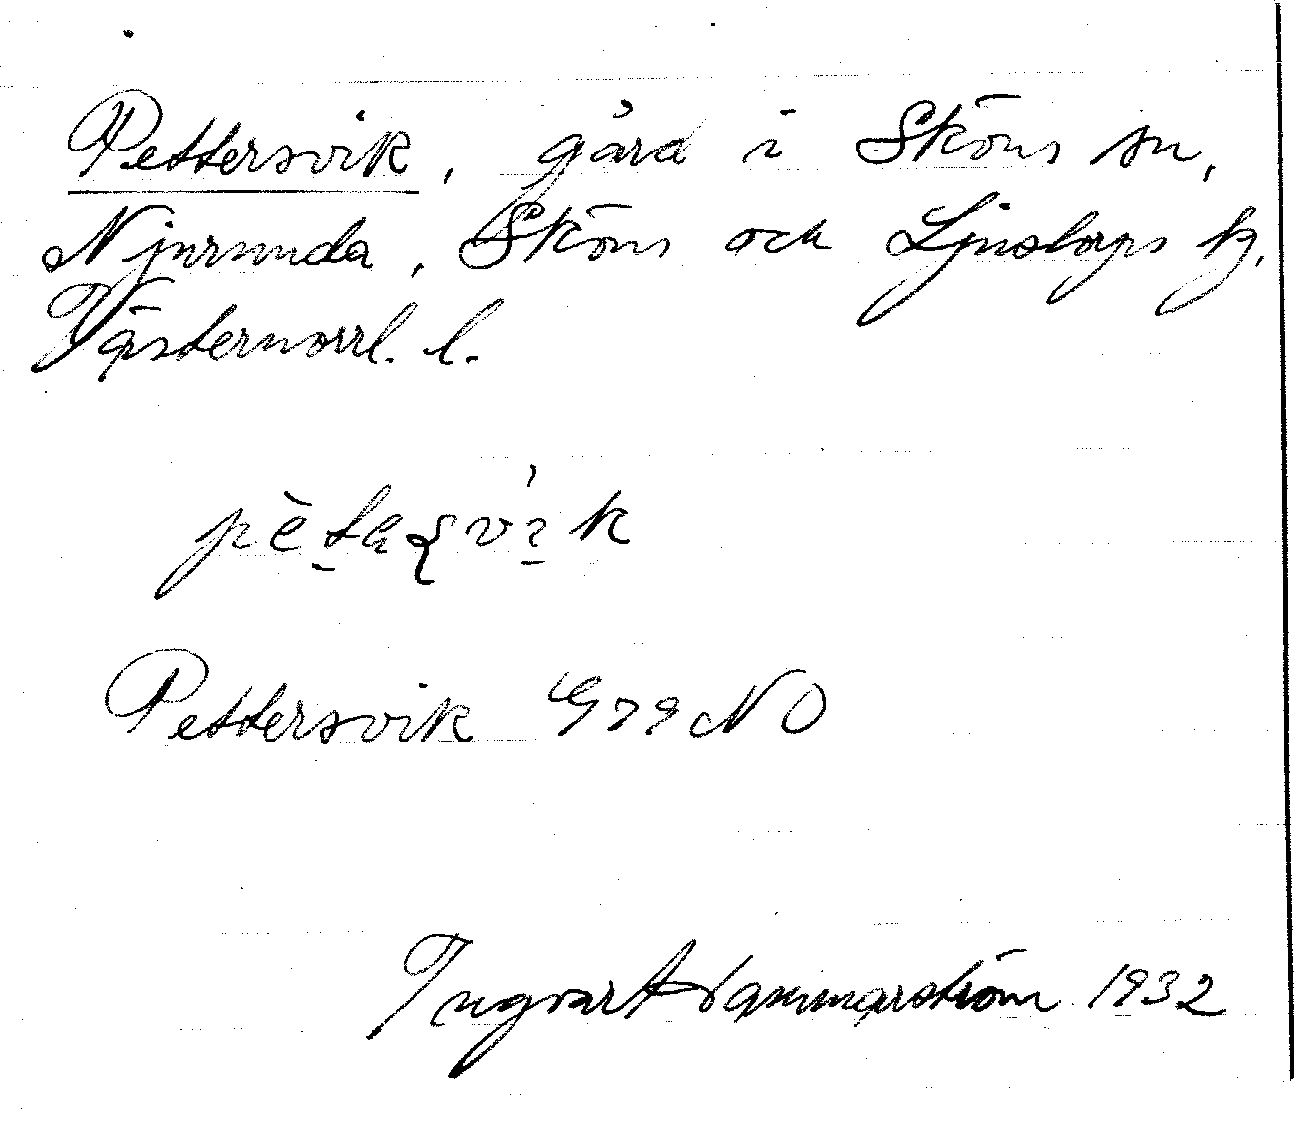 Pettersvik, gård i Sköns sn,
Njurunda, Sköns och Ljustorps tg,
Västernorrl. l.
Pettersvik G79 NO
Ingvart Hammarström 1932